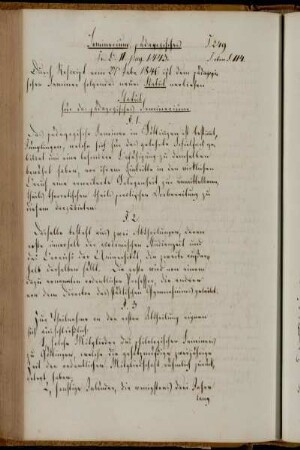 Seminarium, pädagogisches T. 249
Durch Rescript vom 27 Febr 1846 ist dem pädagogi-
schen Seminar folgendes neue Statut verliehen
Statut
für das pädagogische Seminarium
§ 1.
Das pädagogische Seminar in Göttingen ist bestimmt,
Jünglingen, welche sich für das gelehrte Schulfach ge-
bildet und eine besondere Befähigung zu demselben
bewährt haben, vor ihrem Eintritte in den wirklichen
Beruf eine erweiterte Gelegenheit zur
theils theoretischen theils practischen Vorbereitung zu
diesem darzubieten.
§ 2.
Dasselbe besteht aus zwei Abtheilungen, deren
erste innerhalb der academischen Studienzeit und
des Bereichs der Universität, die zweite außer-
halb derselben fällt. Die erste wird von einem
dazu ernannten ordentlichen Professor, die andere
von dem Director des städtischen Gymnasiums geleitet.
§. 3
Zur Theilnahme an der ersten Abtheilung eignen
sich ausschließlich:
1, solche Mitglieder des philologischen Seminars
zu Göttingen, welche die zweijährige
Zeit der ordentlichen Mitgliedschaft rühmlich zurück-
gelegt haben.
2, sonstige Inländer, die wenigstens drei Jahre
lang